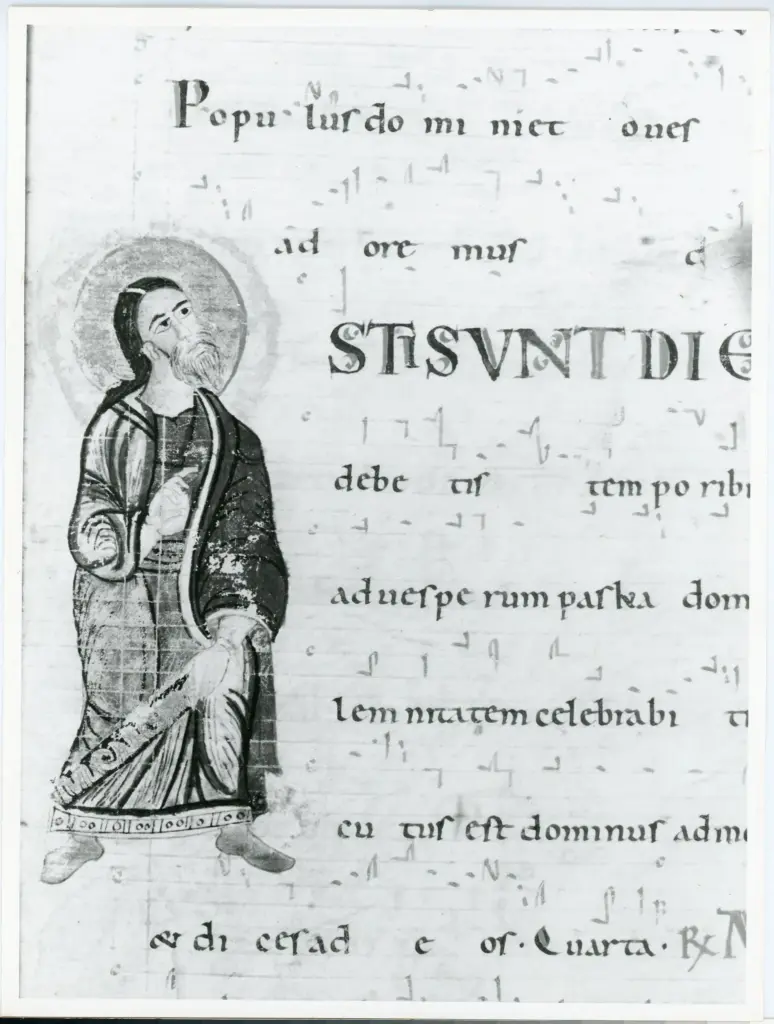 Popu lus do mi ni et oues
ad ore mus
STI SVNT DIE
debe tis tem po ribi
ad uespe rum pascha dom
lem nitatem celebrabi ti
cu tus est dominus ad mo
& di ces ad e os. Quarta. R